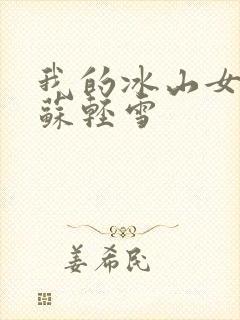 我的冰山女
蘇輕雪
姜希民